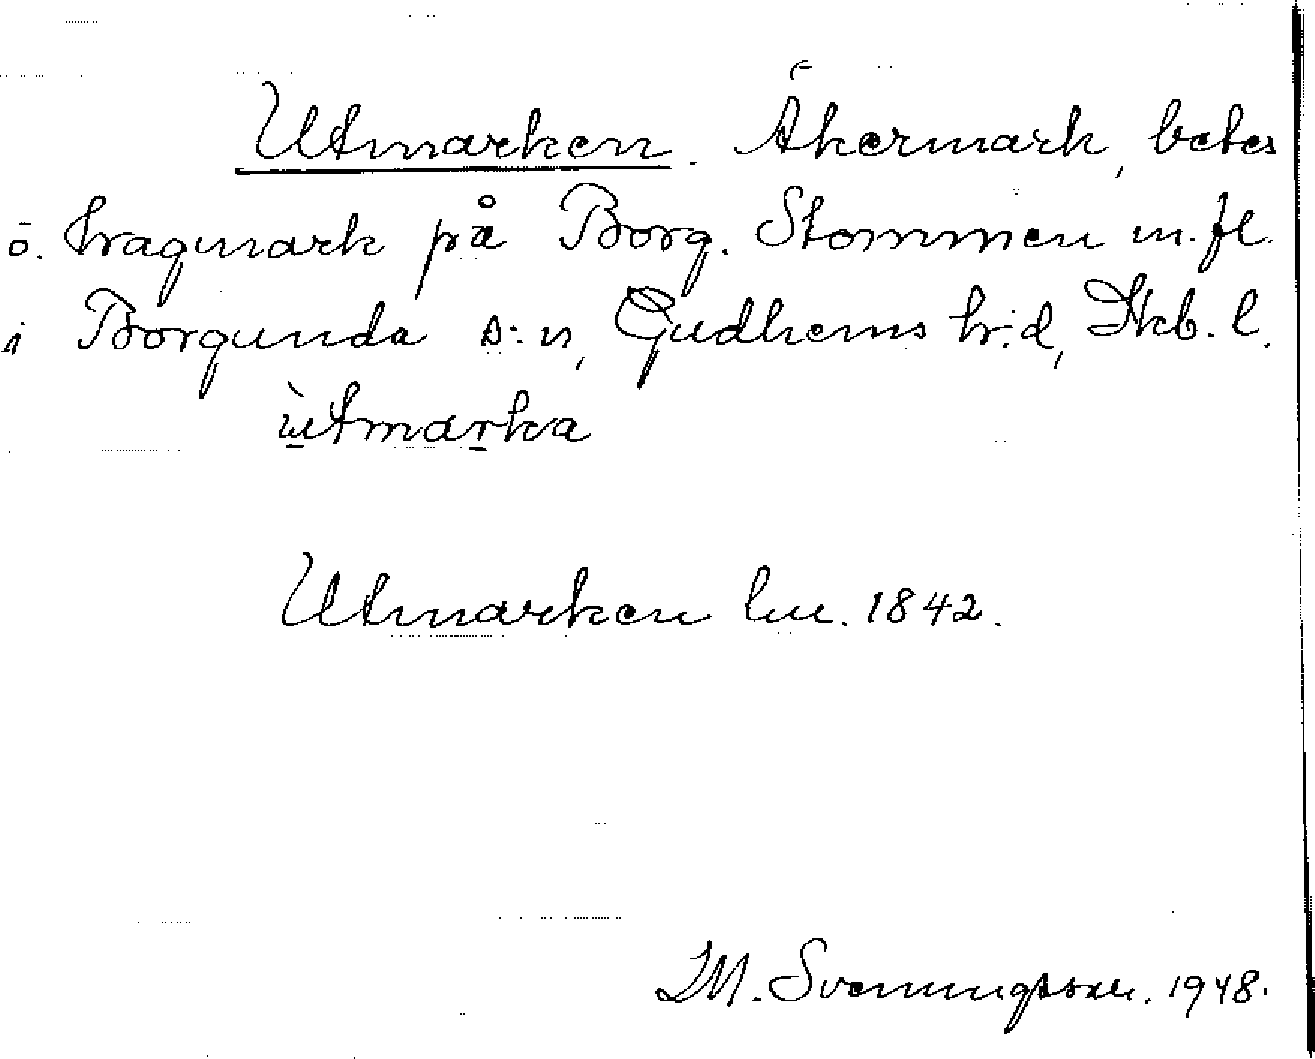 Utmarken. Åkermark, betes
o. hagmark på Borg. Stommen m.fl.
i Borgunda s:n, Gudhems hr:d, Skb. l.
ùtmarka
Utmarken lm. 1842.
M. Svenungsson. 1948.